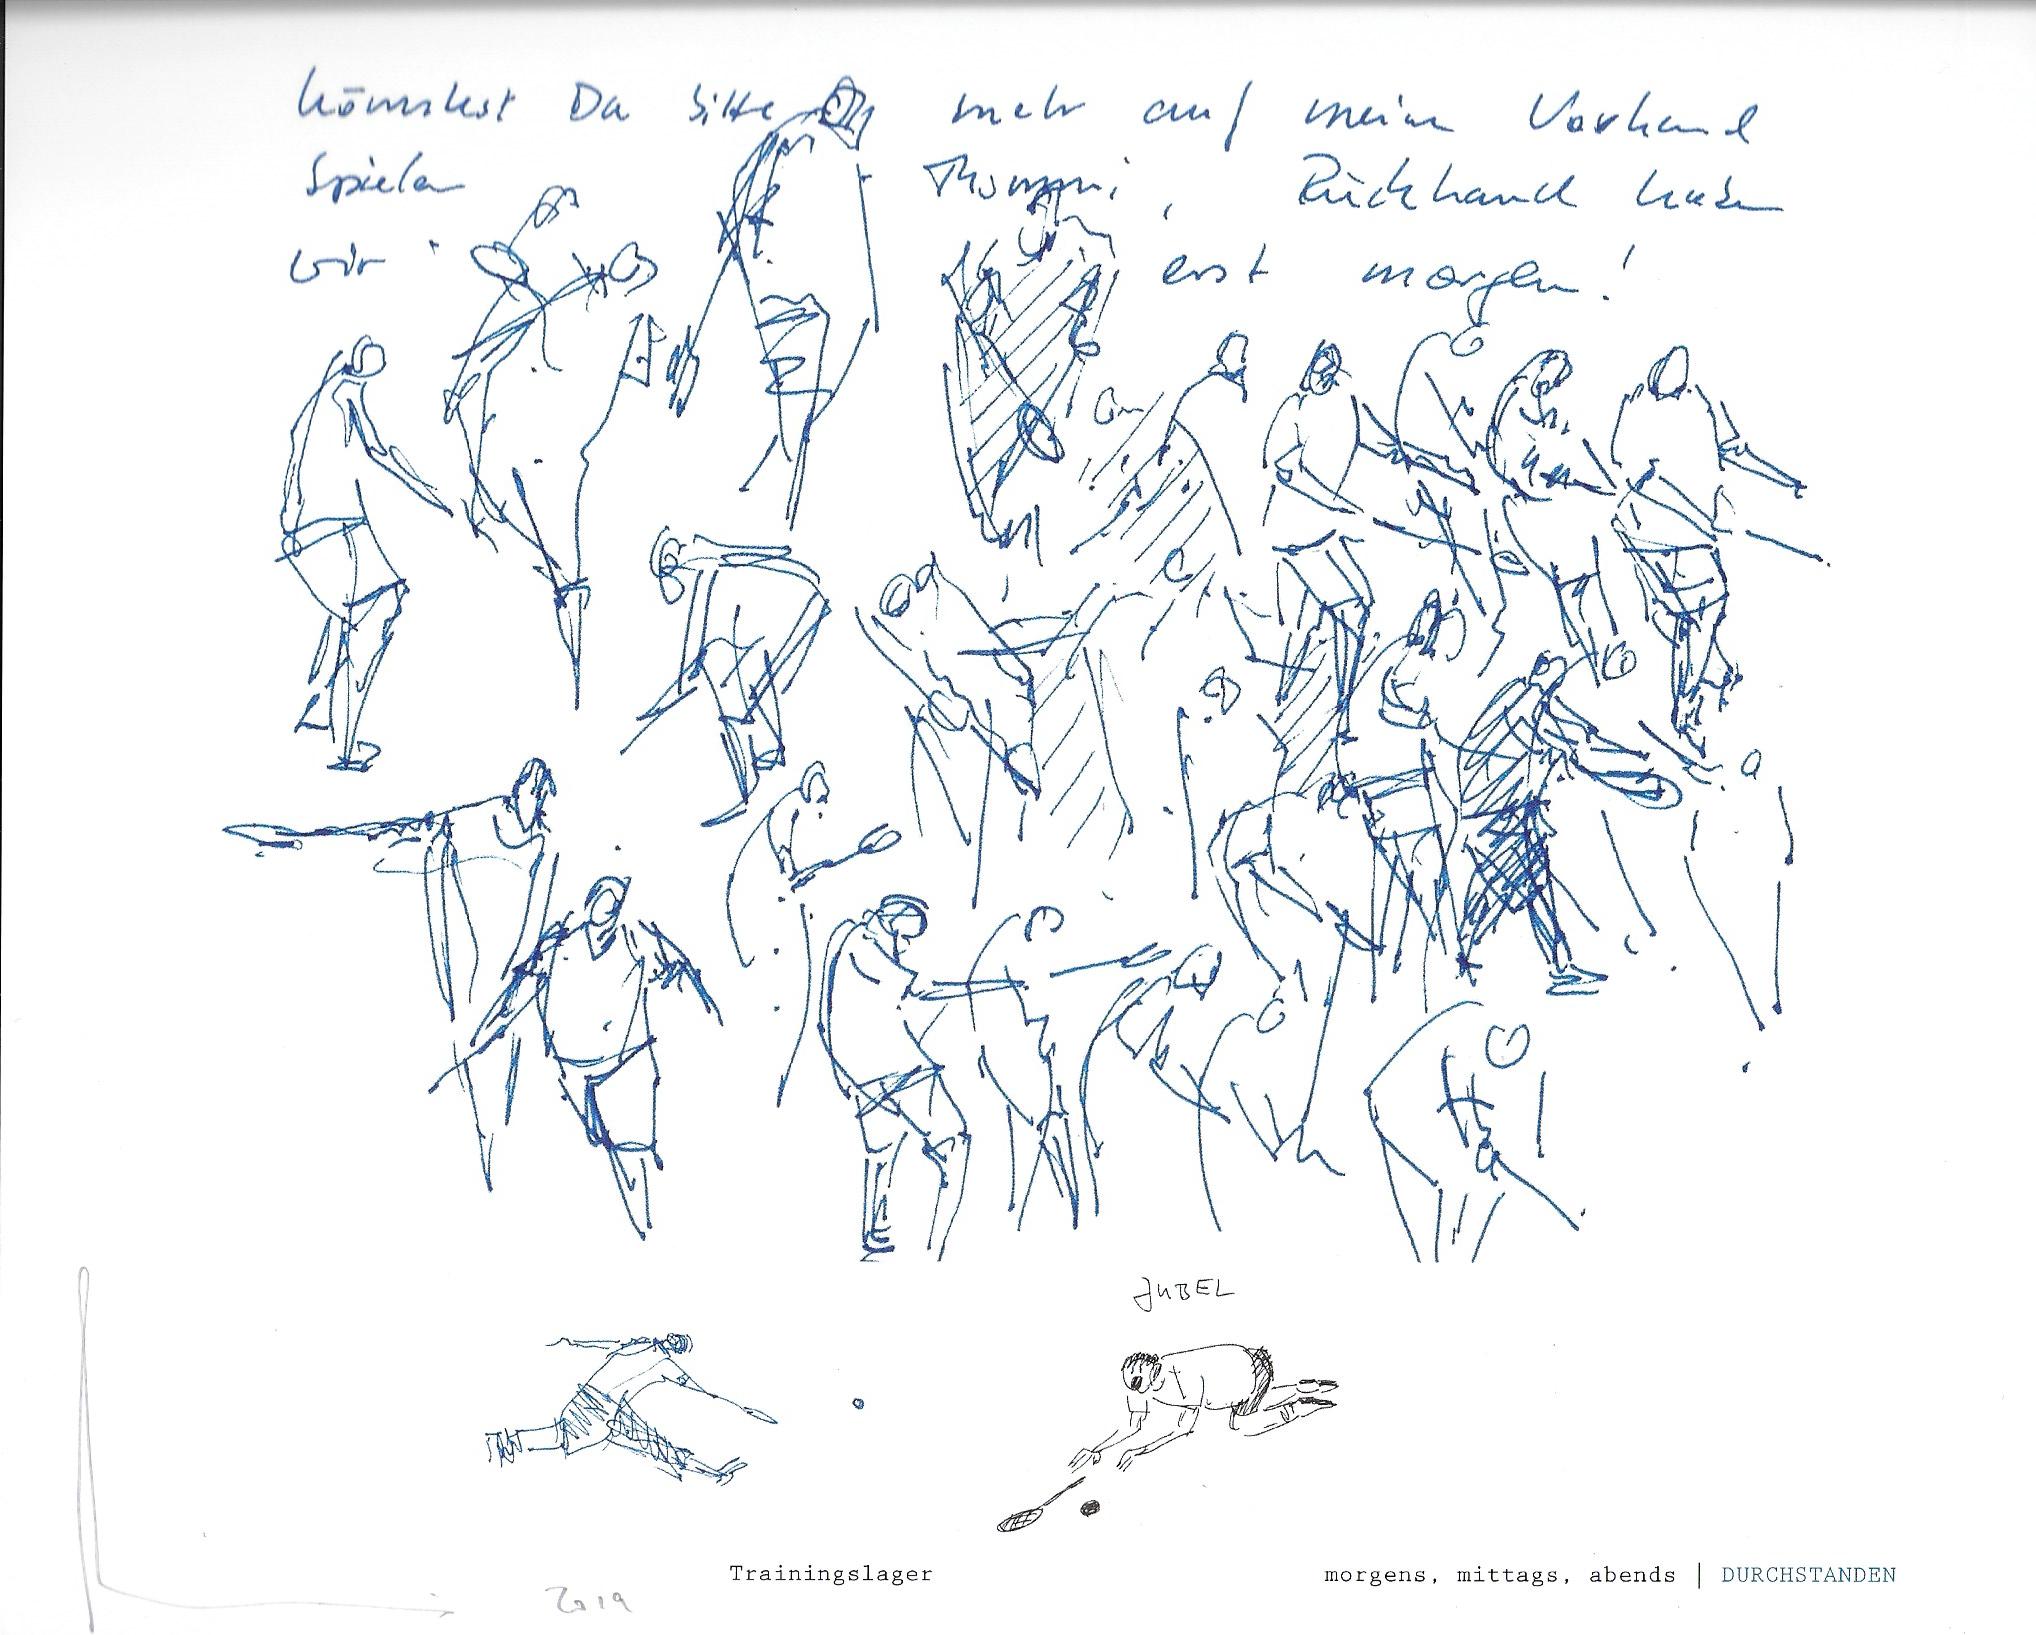 könntest Du bitte mehr auf meine Vorhand
spielen Thommi, Rückhand haben
wir erst morgen!
JUBEL
Trainingslager
morgens, mittags, abends | DURCHSTANDEN
2019